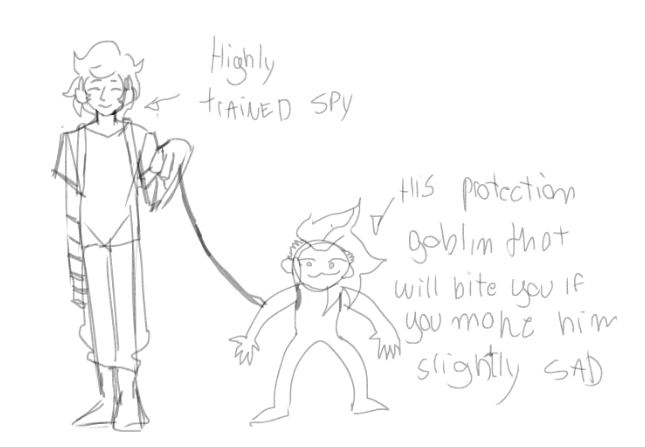 Highly
trAINED SPY
HIS protection
goblin that
will bite you IF
you make him
slightly SAD